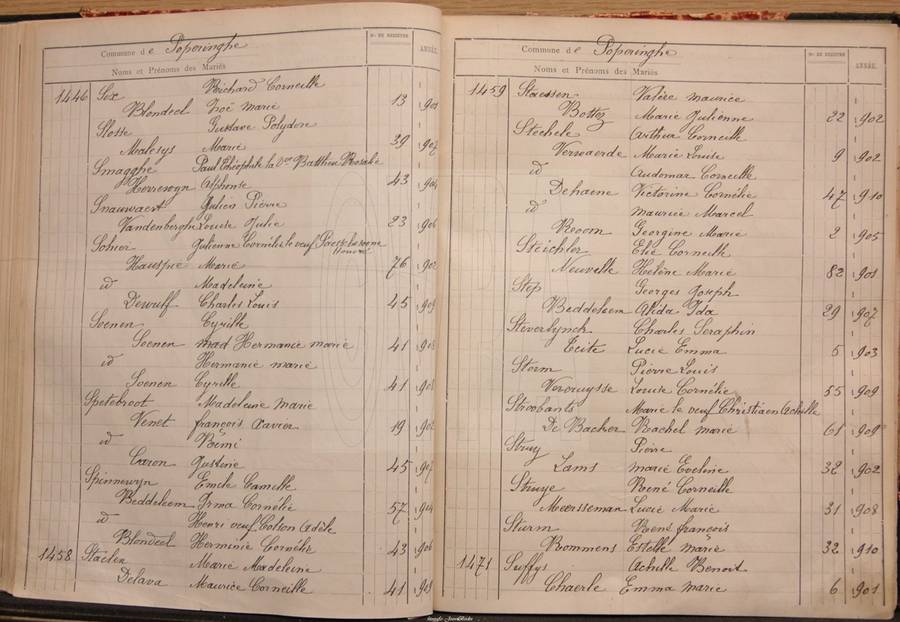 Commune de Poperinghe
Nos DE REGISTRE
ANNÉE
Noms et Prénoms des Mariés
1446 Sex Richard Corneille
Blondeel Zoé Marie 13 1901
Slosse Gustave Polydore
Malesys Marie 39 907
Smagghe Paul Théophile Batthieu Rosalie
Herreweyn Alphonse 43 904
Snauwaert Julien Pierre
Vandenberghe Louise Julie 23 906
Sohier Julienne Cornélie le veuf
Honoré
Hauspie Marie 76 902
id Madeleine
Dewulf Charles Louis 45 909
Soenen Cyrille
Soenen mad Hermanie marie 41 908
id Hermanie marie
Soenen Cyrille 41 908
Spetebroot Madeleine Marie
Venet françois Xavier 19 902
id Rémi
Caron Justine 45 907
Spinnewyn Emile Camille
Beddeleem Irma Cornélie 57 904
id Henri veuf Colson Adèle
Blondeel Herminie Cornélie 43 906
1458 Staelen Marie Madeleine
Delava Maurice Corneille 41 903
Commune de Poperinghe
Nos DE REGISTRE
ANNÉE.
Noms et Prénoms des Mariés
1459 Staessen Valère Maurice
Bottez Marie Julienne 22 902
Stechele Arthur Corneille
Verwaerde Marie Louise 9 902
id Audomar Corneille
Dehaene Victorine Cornélie 47 910
id Maurice Marcel
Recom Georgine Marie 2 905
Steichler Elie Corneille
Neuville Hélène Marie 82 901
Step Georges Joseph
Beddeleem Alida Ida 29 907
Steverlynck Charles Seraphin
Ecite Lucie Emma 5 903
Storm Pierre Louis
Vercruysse Louise Cornélie 55 909
Stroobants Marie le veuf Christiaen Achille
De Backer Rachel Marie 61 909
Struy Pierre
Lams Marie Eveline 32 902
Struye René Corneille
Meersseman Lucie Marie 31 908
Sturm René françois
Rommens Estelle Marie 32 910
1471 Suffys Achille Benoit
Chaerle Emma Marie 6 901